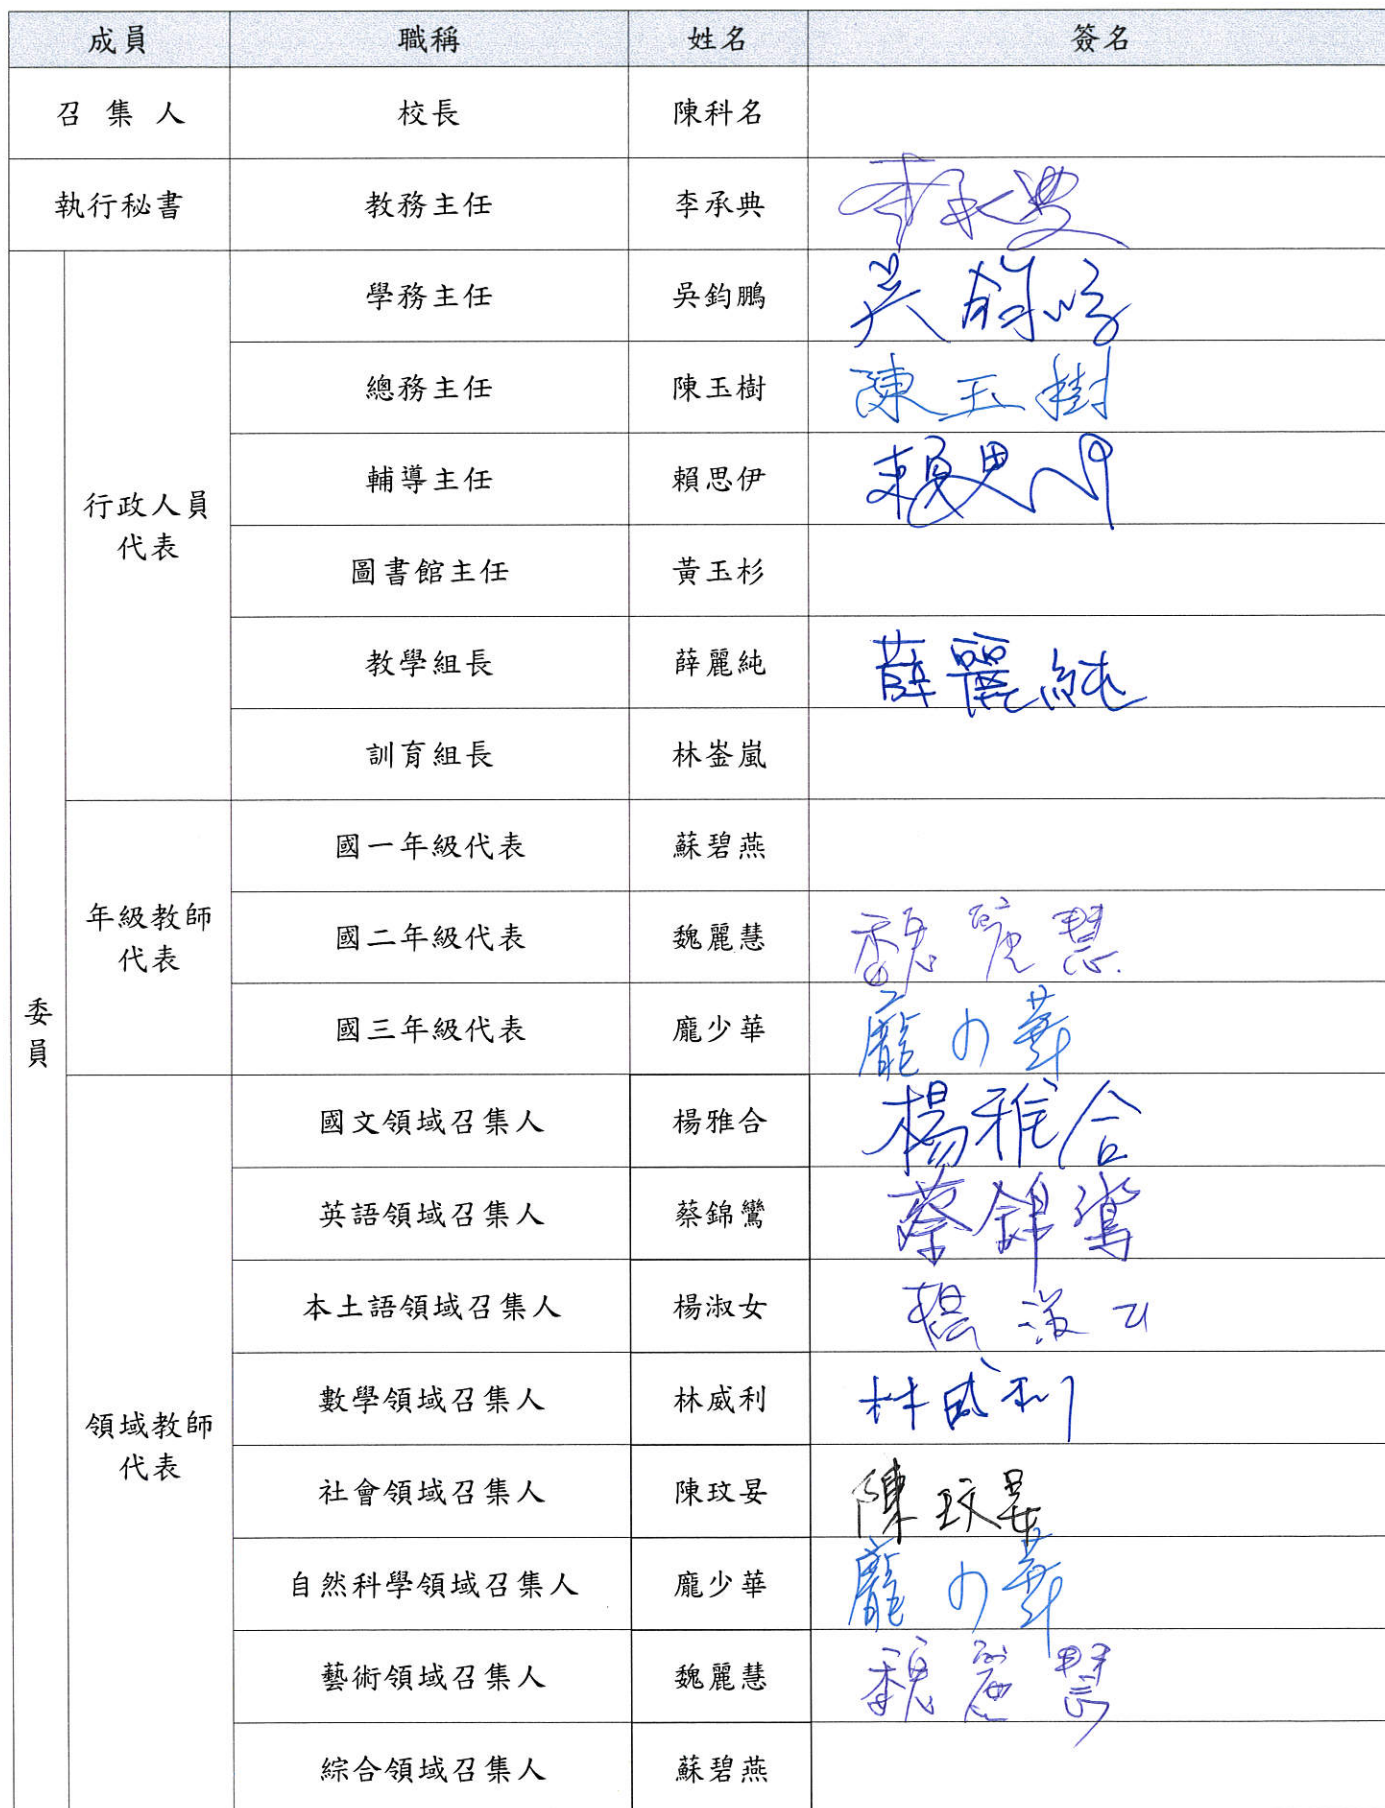 成員 職稱 姓名 簽名
召集人 校長 陳科名
執行秘書 教務主任 李承典 李承典
委員
行政人員代表
學務主任 吳鈞鵬 吳鈞鵬
總務主任 陳玉樹 陳玉樹
輔導主任 賴思伊 賴思伊
圖書館主任 黃玉杉
教學組長 薛麗純 薛麗純
訓育組長 林崟嵐
年級教師代表
國一年級代表 蘇碧燕
國二年級代表 魏麗慧 魏麗慧
國三年級代表 龐少華 龐少華
領域教師代表
國文領域召集人 楊雅合 楊雅合
英語領域召集人 蔡錦鸞 蔡錦鸞
本土語領域召集人 楊淑女 楊淑女
數學領域召集人 林威利 林威利
社會領域召集人 陳玟妟 陳玟妟
自然科學領域召集人 龐少華 龐少華
藝術領域召集人 魏麗慧 魏麗慧
綜合領域召集人 蘇碧燕